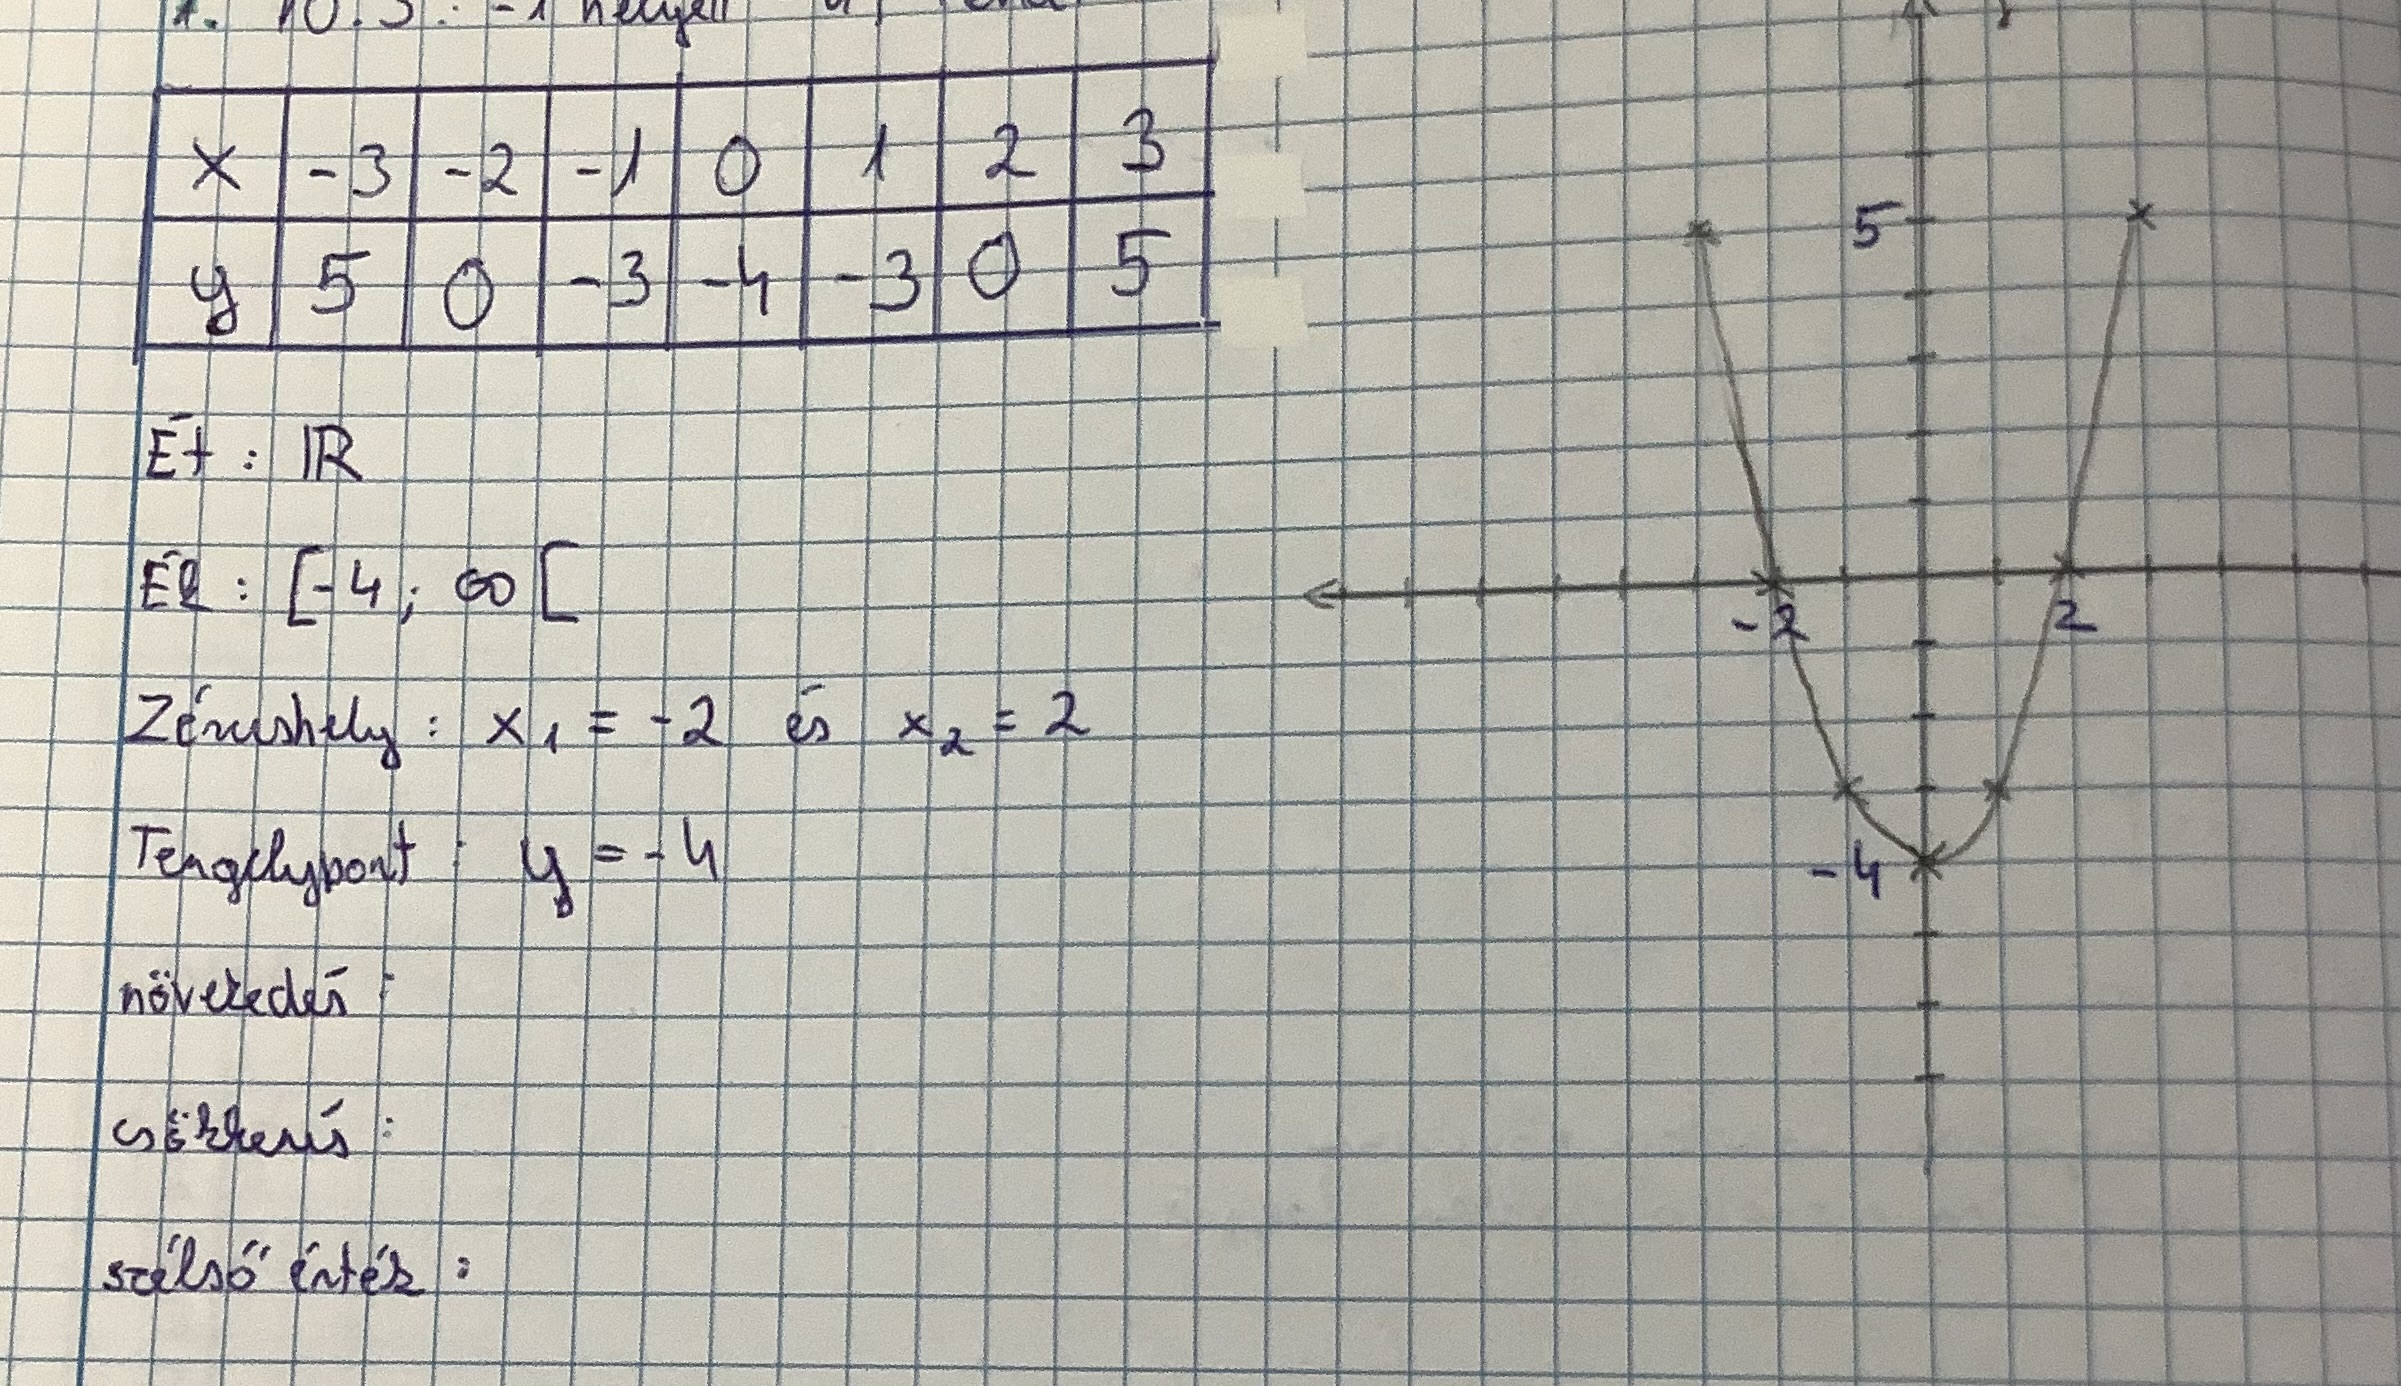 x -3 -2 -1 0 1 2 3
y 5 0 -3 -4 -3 0 5
Ét : ℝ
Ék : [-4 ; ∞ [
Zérushely : x₁ = -2 és x₂ = 2
Tengelypont : y = -4
növekedés :
csökkenés :
szélső érték :
5
-2 2
-4